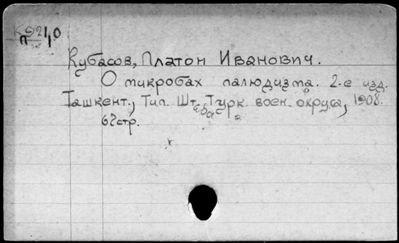 Кубасов, Платон Иванович.
О микробах палюдизма. 2-е изд.
Ташкент, Тип. Штаба Турк. воен. округа, 1908.
62стр.